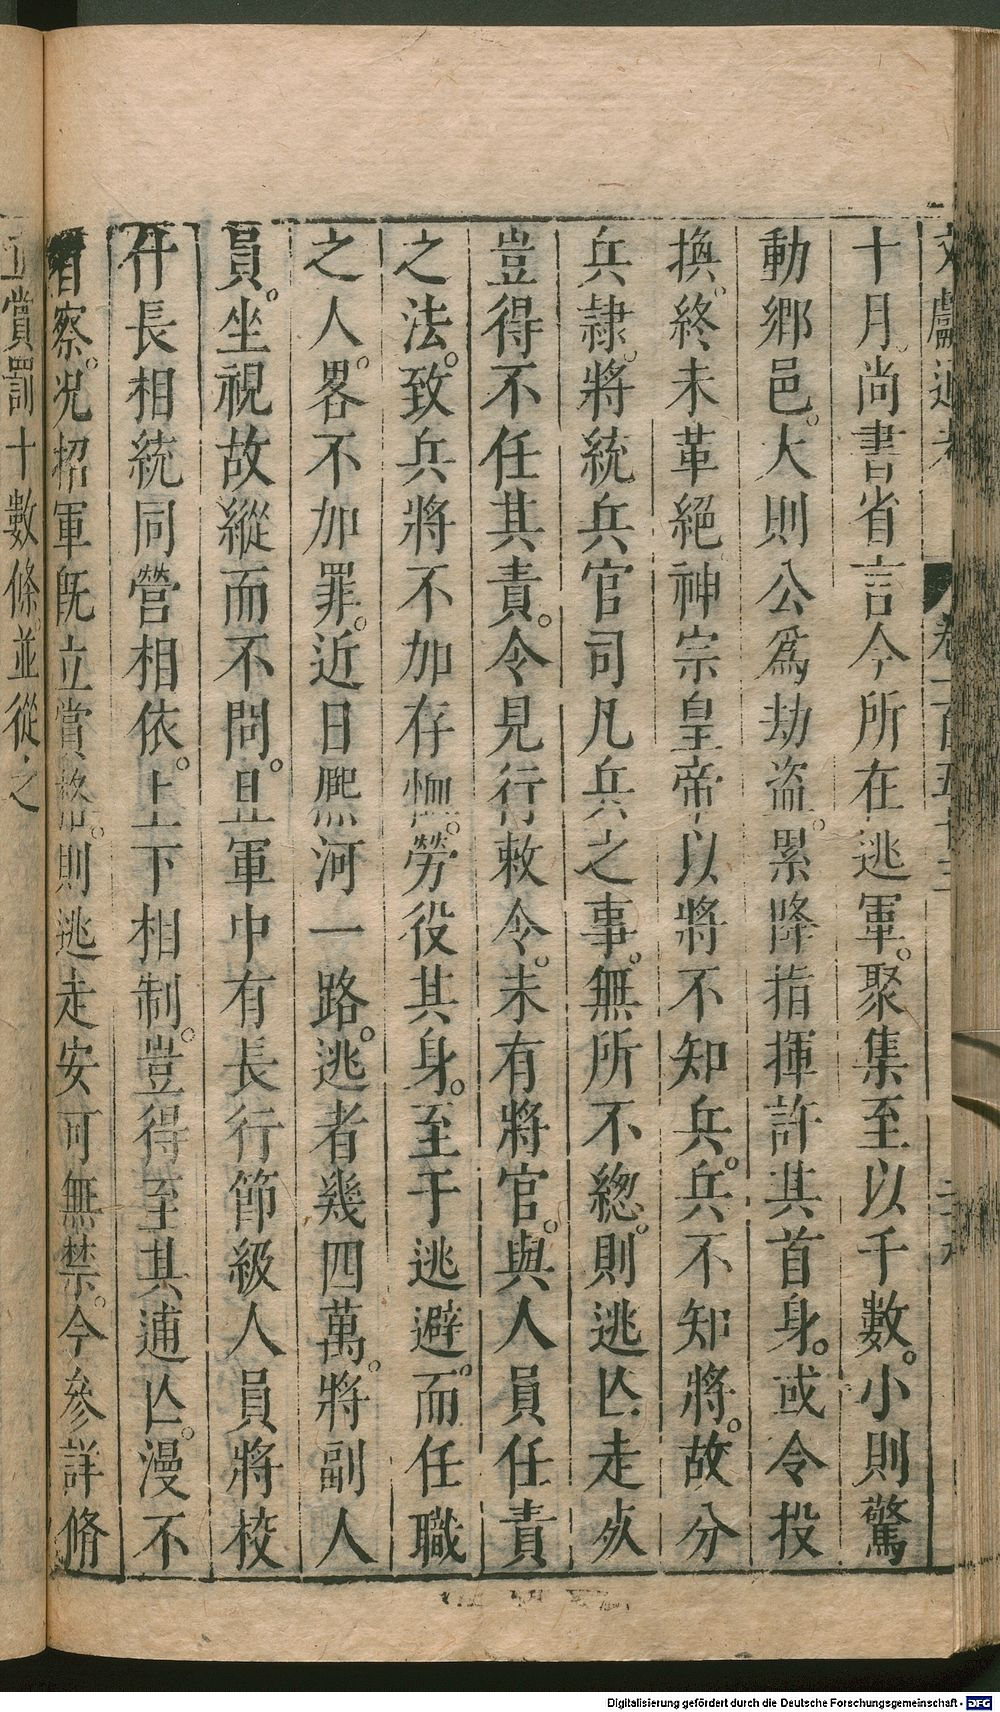 文獻通考 卷一百五十三
十月尚書省言今所在逃軍。聚集至以千數。小則驚
動鄉邑。大則公爲劫盜。累降指揮許其首身。或令投
換。終未革絕神宗皇帝以將不知兵。兵不知將。故分
兵隷。將統兵官司凡兵之事。無所不緫。則逃亾走㱥
豈得不任其責。令見行敕令。未有將官。與人員任責
之法。致兵將不加存恤。勞役其身。至于逃避。而任職
之人。畧不加罪。近日熈河一路。逃者幾四萬。將副人
員。坐視故縱而不問。且軍中有長行節級人員將校
什長相統同營相依。上下相制。豈得至其逋亾。漫不
省察。况招軍旣立賞格。則逃走安可無禁。今參詳脩
立賞罰十數條。並從之
Digitalisierung gefördert durch die Deutsche Forschungsgemeinschaft - DFG